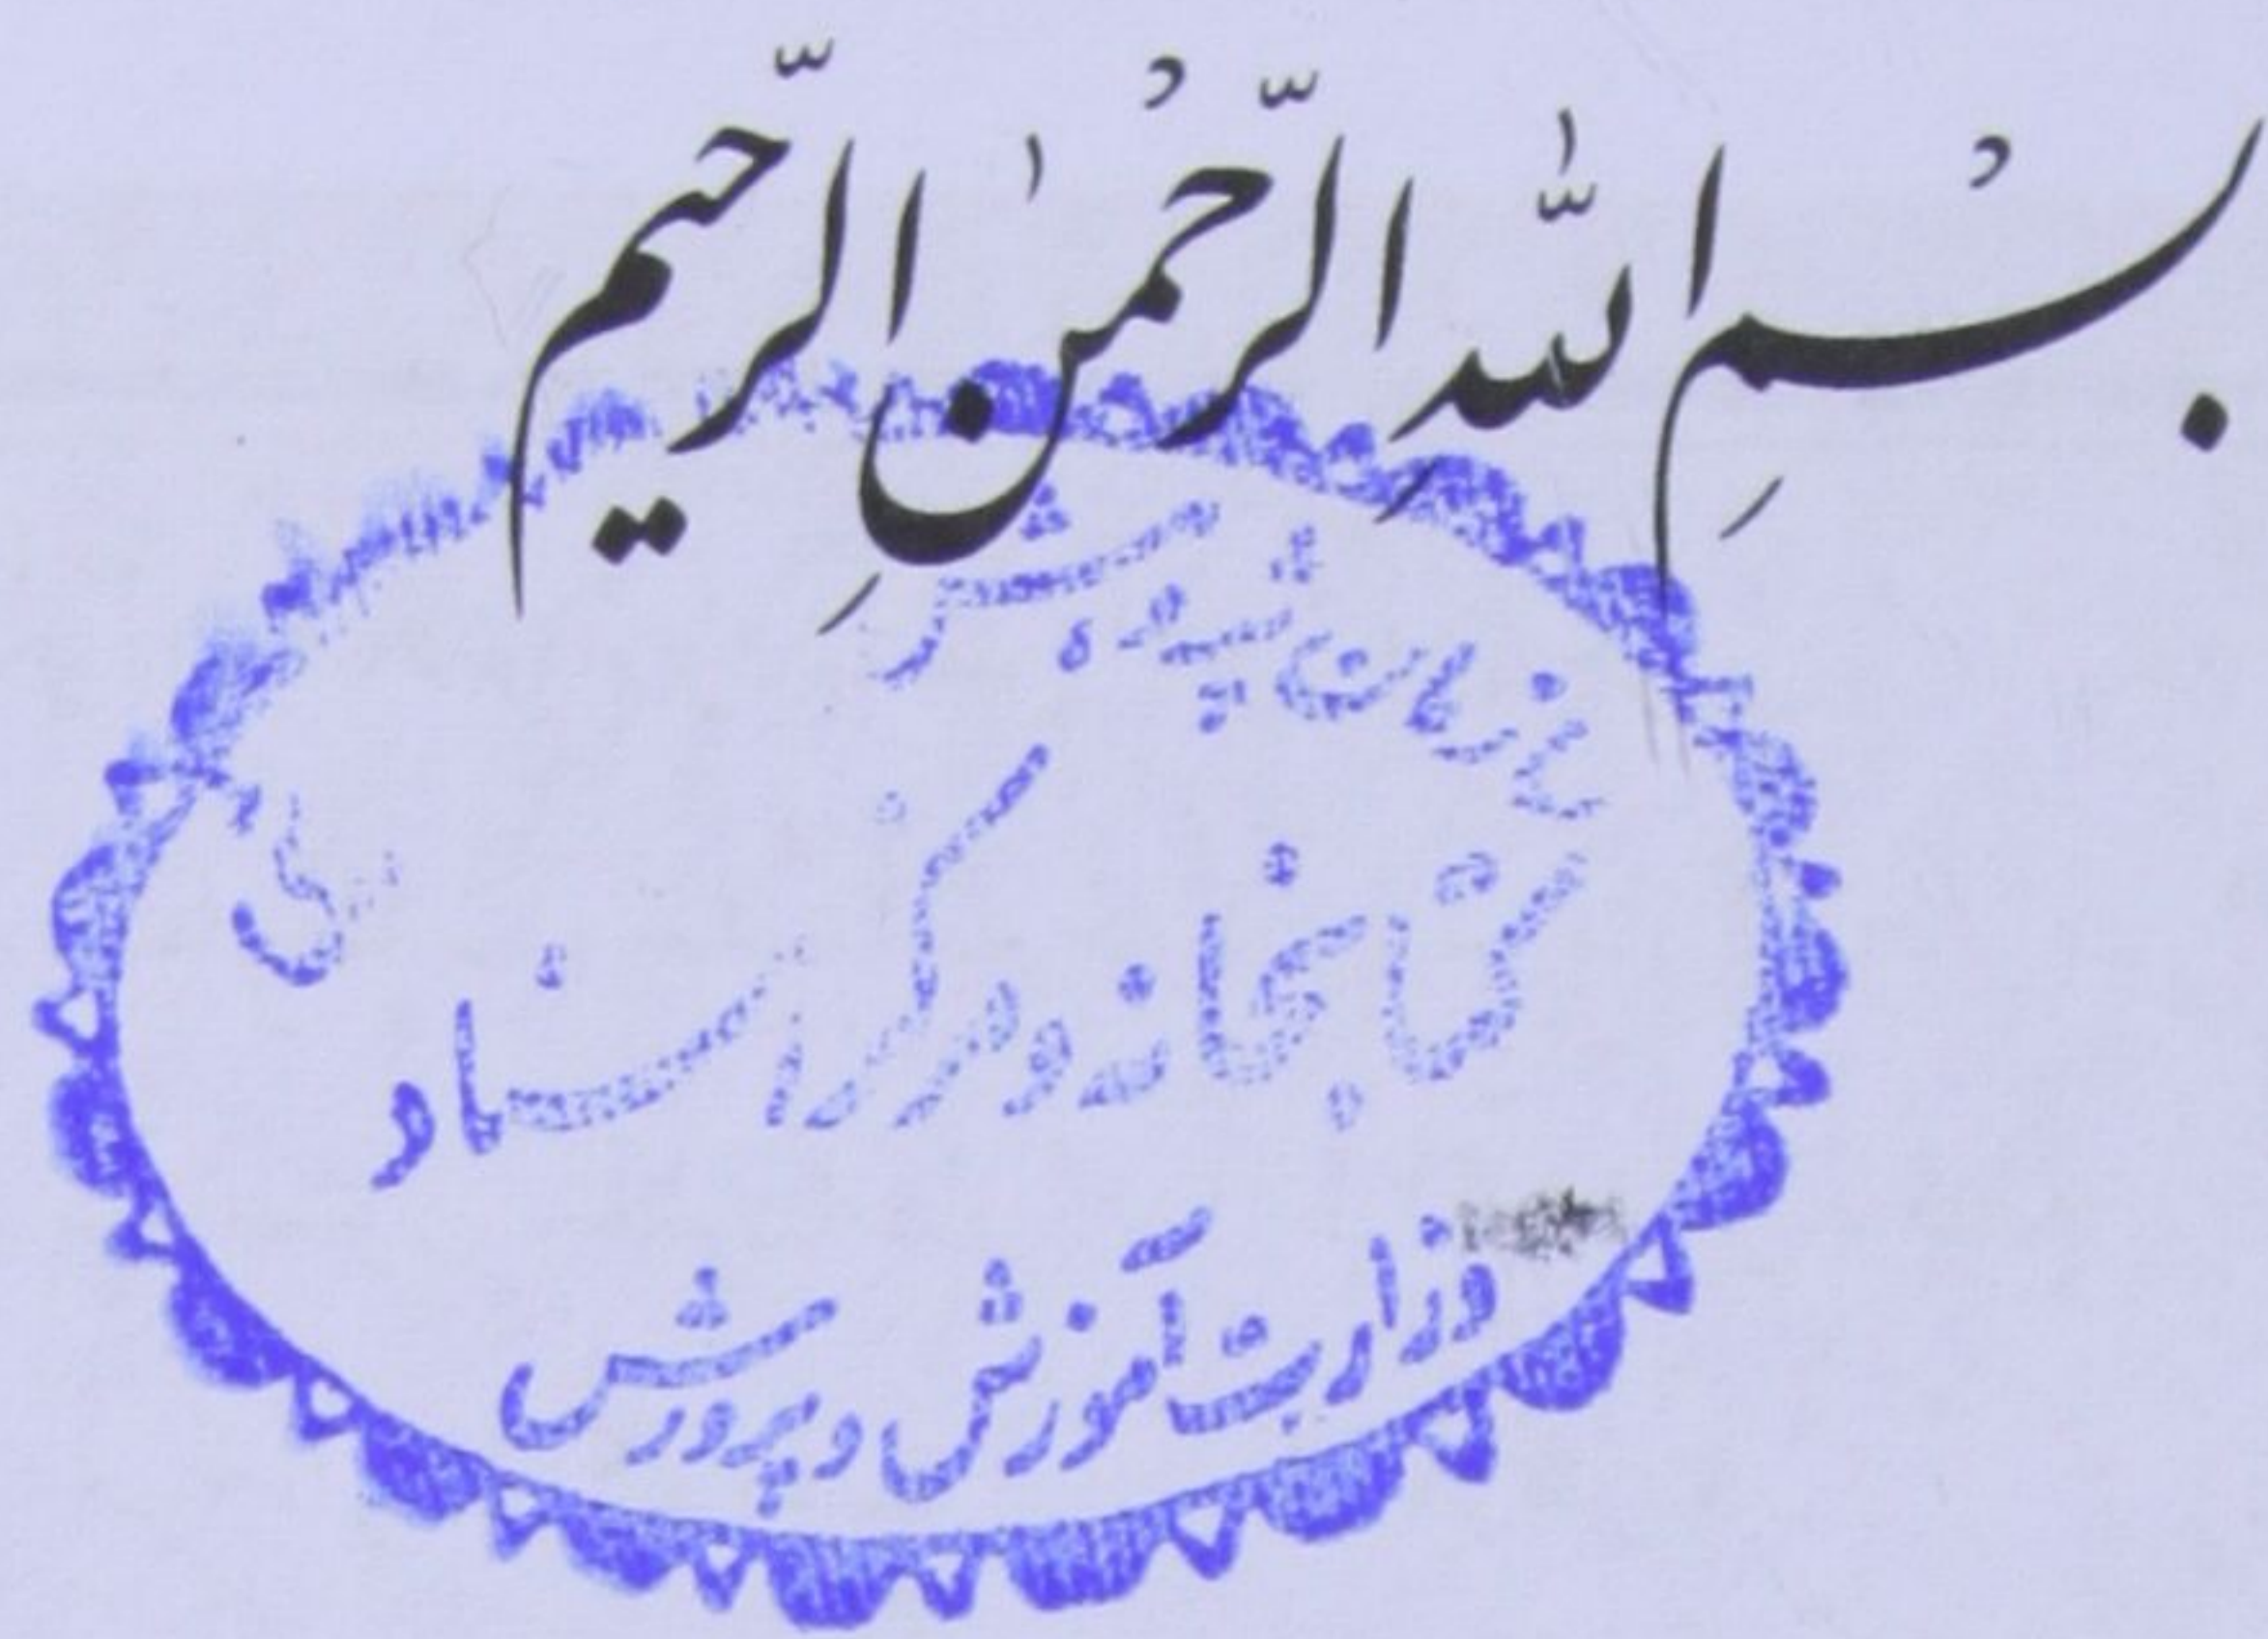 بِسْمِ اللّٰهِ الرَّحْمٰنِ الرَّحیم
سازمان پژوهش
کتابخانه و مرکز اسناد
وزارت آموزش و پرورش